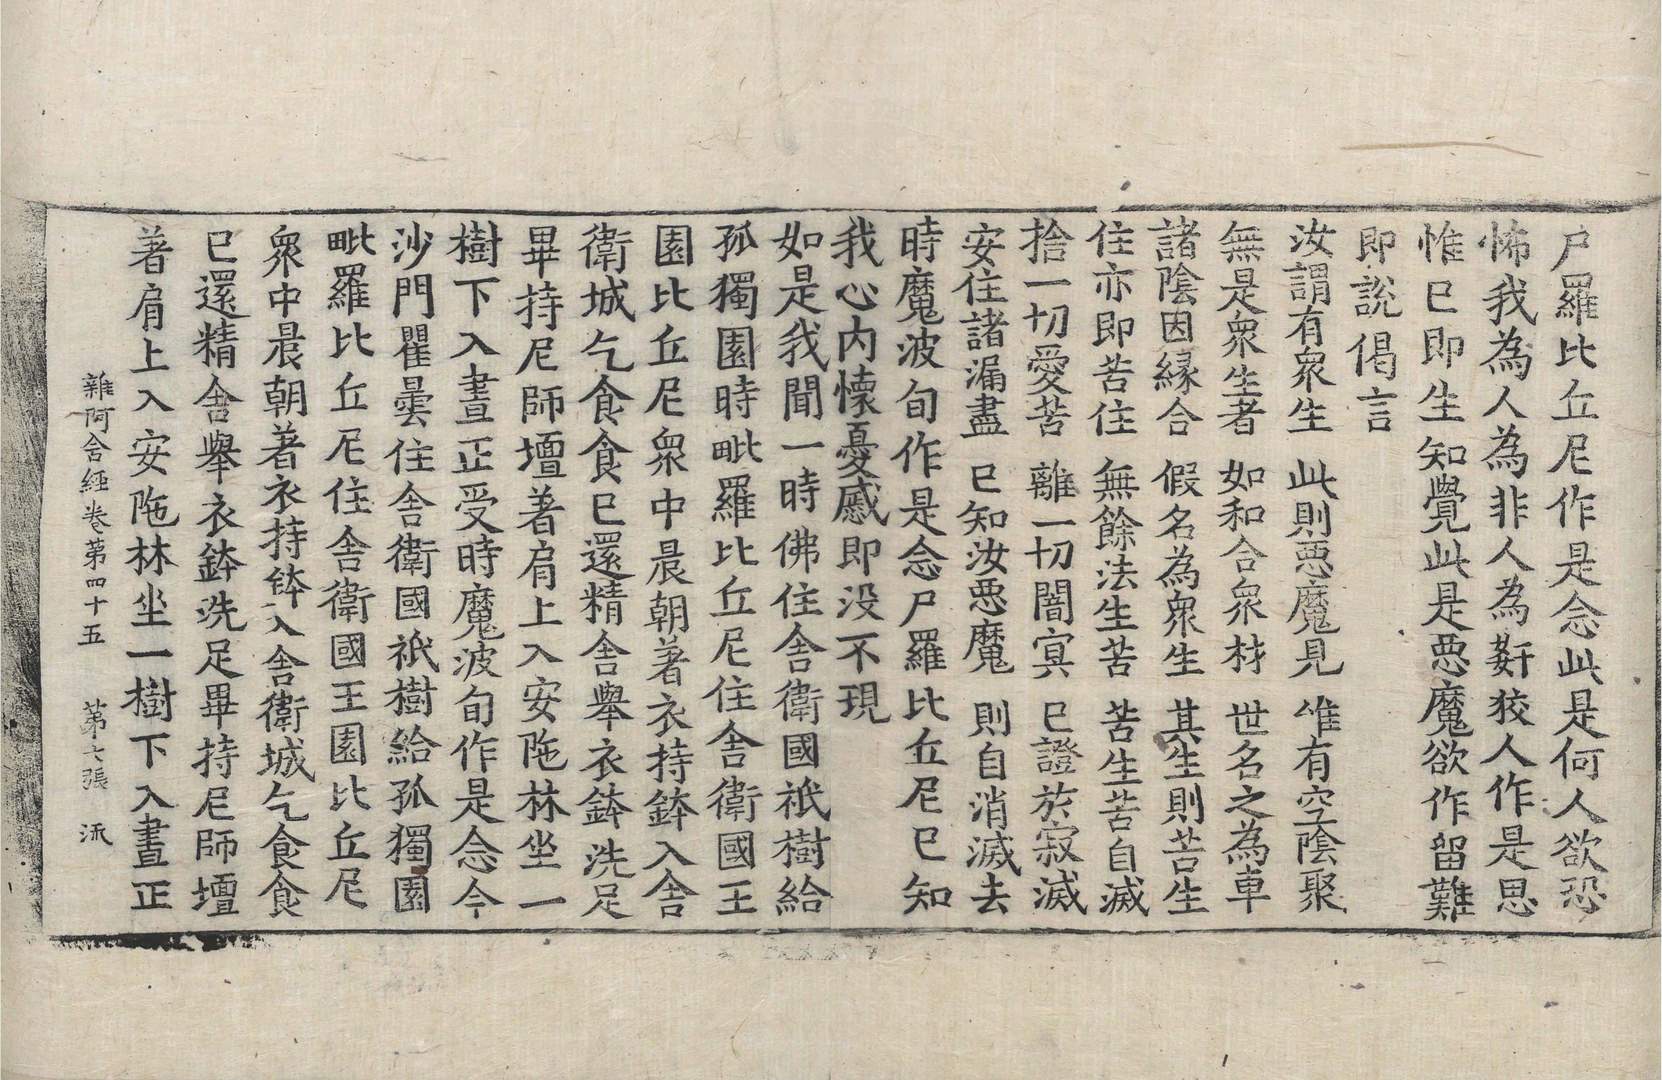 尸羅比丘尼作是念此是何人欲恐
怖我為人為非人為姧狡人作是思
惟已即生知覺此是惡魔欲作留難
即說偈言
汝謂有衆生　此則惡魔見　唯有空陰聚
無是衆生者　如和合衆材　世名之為車
諸陰因緣合　假名為衆生　其生則苦生
住亦即苦住　無餘法生苦　苦生苦自滅
捨一切愛苦　離一切闇冥　已證於寂滅
安住諸漏盡　已知汝惡魔　則自消滅去
時魔波旬作是念尸羅比丘尼已知
我心內懷憂慼即没不現
如是我聞一時佛住舍衛國祇樹給
孤獨園時毗羅比丘尼住舍衛國王
園比丘尼衆中晨朝著衣持鉢入舍
衛城乞食食已還精舍舉衣鉢洗足
畢持尼師壇著肩上入安陁林坐一
樹下入晝正受時魔波旬作是念今
沙門瞿曇住舍衛國祇樹給孤獨園
毗羅比丘尼住舍衛國王園比丘尼
衆中晨朝著衣持鉢入舍衛城乞食食
已還精舍舉衣鉢洗足畢持尼師壇
著肩上入安陁林坐一樹下入晝正
雜阿含經卷第四十五　第六張　流